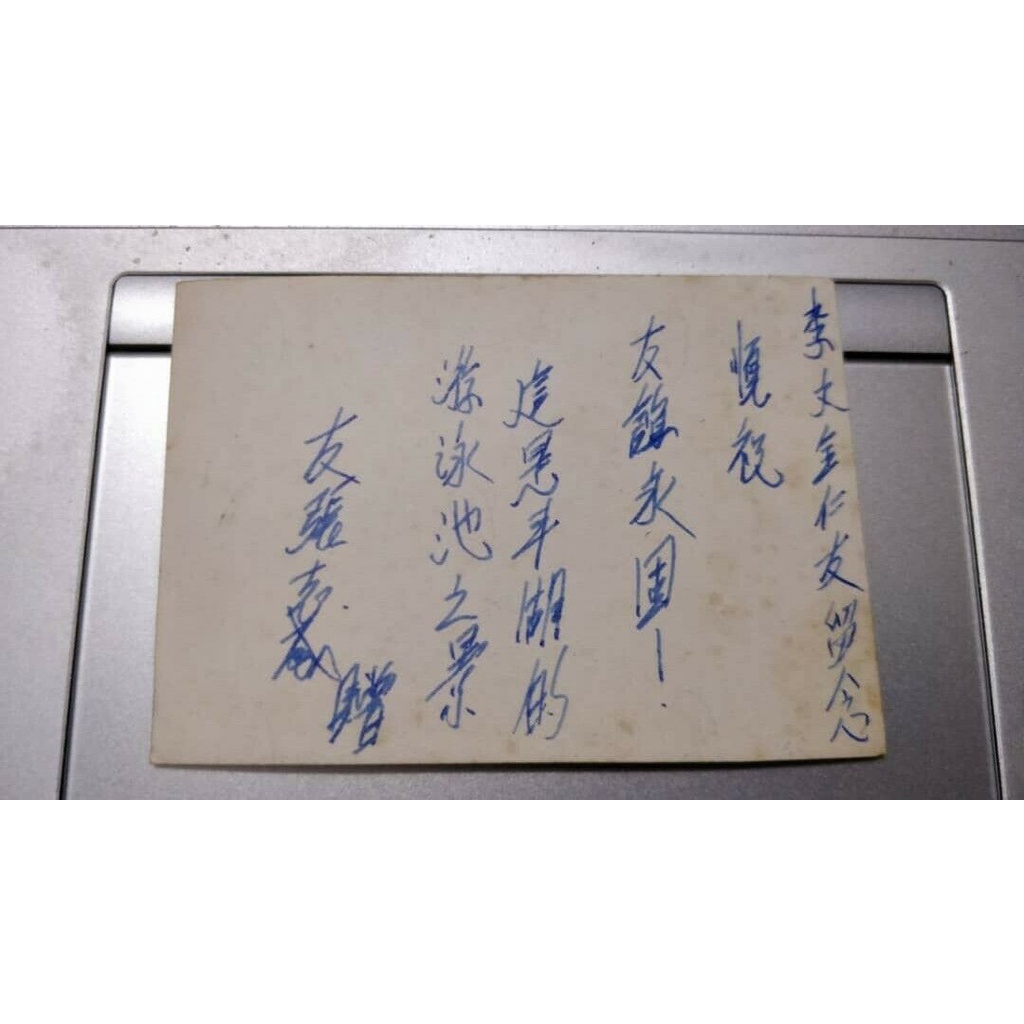 李文全仁友留念
慨祝
友誼永固！
這是平湖的
游泳池之景
友張志成
贈